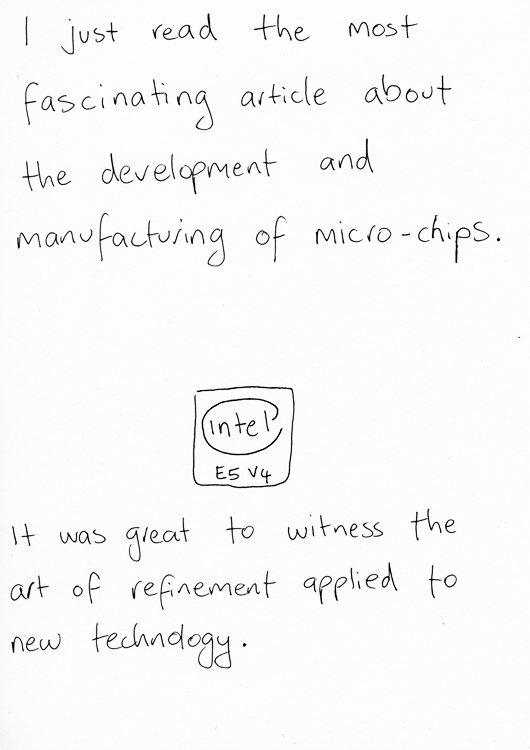 I just read the most
fascinating article about
the development and
manufacturing of micro-chips.
intel
E5 V4
It was great to witness the
art of refinement applied to
new technology.